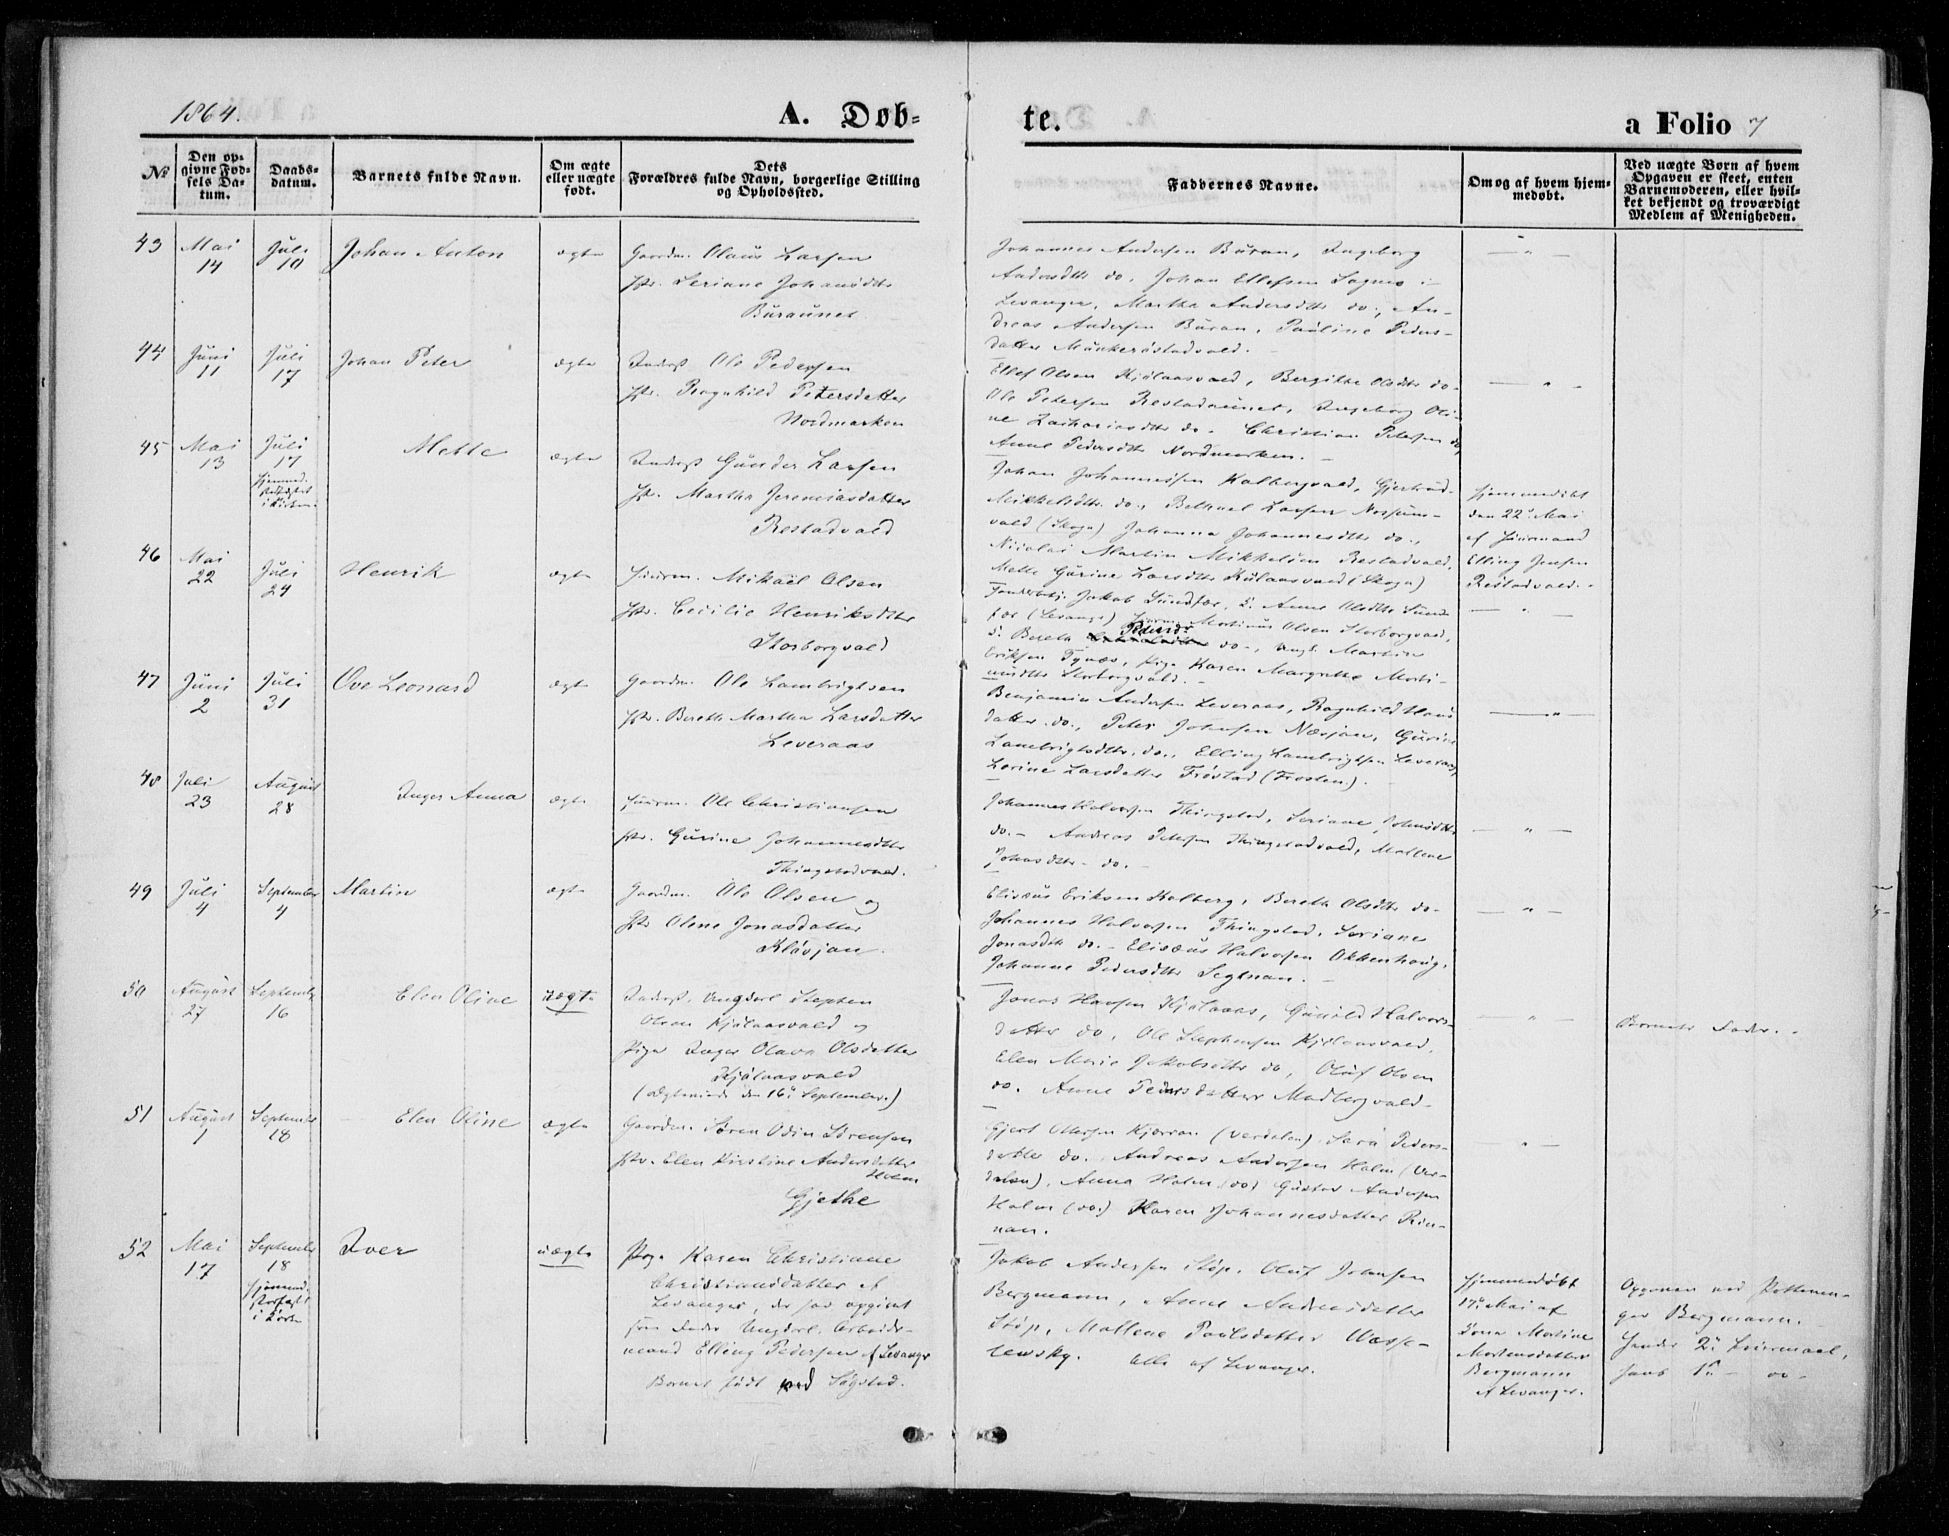 1864.
A. Døb=
te.
a Folio 7
No
Den op=
givne Fød=
sels Da=
tum.
Daabs=
datum.
Barnets fulde Navn.
Om ægte
eller uægte
født.
Dets
Forældres fulde Navn, borgerlige Stilling
og Opholdssted.
Faddernes Navne.
Om og af hvem hjem=
medøbt.
Ved uægte Børn af hvem
Opgaven er skeet, enten
Barnemoderen, eller hvil=
ket bekjendt og troværdigt
Medlem af Menigheden.
43
Mai
14
Juli
10
Johan Anton
ægte
Gaardm. Olaus Larsen
Hst. Seriane Johansdtr
Buraunet
Johannes Andersen Buran, Ingeborg
Andersdtr do. Johan Ellefsen Sognes i
Levanger, Martha Andersdtr do., An-
dreas Andersen Buran, Pauline Peders-
datter
44
Juni
11
Juli
17
Johan Peter
ægte
Inderst Ole Pedersen
Hst. Ragnhild Petersdatter
Nordmarken
Ellef Olsen Kjølaasvald, Bergitte Olsdtr do.
Ole Petersen Restadaunet, Ingeborg Oli-
ne Zachariasdtr do. Christian Petersen do,
Anne Pedersdtr Nordmarken.
45
Mai
13
Juli
17
hjemmed.
stadfæstet
i Kirken
Mette
ægte
Inderst Gunder Larsen
Hst. Martha Jeremiasdatter
Restadvald
Johan Johannessen Halbergvald, Gjertrud
Mikkelsdtr. do., Bethuel Larsen
vald (Skogn) Johanna Johannesdtr do.,
Nicolai Martin Mikkelsen Restadvald,
Mette Gurine Larsdtr Kjølaasvald (Skogn)
hjemmedøbt
den 22' Mai
af Huusmand
Elling Jensen
Restadvald.
46
Mai
22
Juli
24
Henrik
ægte
Huusm. Mikael Olsen
Hst. Cecilie Henriksdtr
Storborgvald
Jakob Sundfær, Anne Olsdtr Sund
fær (Levanger) Huusm. Martinus Olsen Storborgvald,
Bereth Pedersdtr do., Ungk. Martin
Eriksen Tynæs, Pige Karen Margrethe Marti-
nusdtr Storborgvald.
47
Juni
2
Juli
31
Ove Leonard
ægte
Gaardm. Ole Lambrigtsen
Hst. Bereth Martha Larsdatter
Leveraas
Benjamin Andersen Leveraas, Ragnhild Hans
datter do., Peter Johnsen Næsjan, Gurine
Lambrigtsdtr. do., Elling Lambrigtsen Leveraas,
Lorine Larsdatter Frøstad (Frosten.).
48
Juli
23
August
28
Inger Anna
ægte
Huusm. Ole Christiansen
Hst. Gurine Johannesdtr
Thingstadvald.
Johannes Halvorsen Thingstad, Seriane Johnsdtr
do. Andreas Petersen Thingstadvald, Mallene
Johnsdtr do.
49
Juli
4
September
4
Martin
ægte
Gaardm. Ole Olsen og
Hst Olene Jonasdatter
Kløvjan.
Elisæus Eriksen Halberg, Bereth Olsdtr do.
Johannes Halvorsen Thingstad, Seriane
Jonasdtr do. Elisæus Halvorsen Okkenhaug,
Johanne Pedersdtr Segtnan.
50
August
27
September
16
Elen Oline
uægte
Inderst, Ungkarl Stephen
Olsen Kjølaasvald og
Pige Inger Olava Olsdatter
Kjølaasvald
(ægteviede den 16' September.)
Jonas Hansen Kjølaas, Gunild Halvors-
datter do, Ole Stephensen Kjølaasvald,
Elen Marie Jakobsdtr do, Oluf Olsen
do. Anne Pedersdatter Madbergvald.
Barnets Fader.
51
August
1
September
18
Elen Oline
ægte
Gaardm. Søren Odin Sørensen
Hst. Elen Kirstine Andersdatter
Holm
Gjethe
Gjert Olsen Kjærran (Verdalen), Sara Peders-
datter do. Andreas Andersen Holm (Ver-
dalen), Anna Holm (do) Gustav Andersen
Holm (do.) Karen Johannesdatter Rin-
nan.
52
Mai
17
September
18
hjemmed.
stadfæstet
i Kirken
Iver
uægte
Pige Karen Christiane
Christiansdatter af
Levanger, der har opgivet
som Fader Ungkarl, Arbeids-
mand Elling Pedersen af Levanger
Barnet født ved Søgstad.
Jakob Andersen Støp, Oluf Johansen
Bergmann, Anne Andreasdatter
Støp, Mallene Paulsdatter Wasse-
lewsky. Alle af Levanger.
hjemmedøbt
17' Mai af
Jona Martine
Mortensdatter
Bergmann
af Levanger.
Opgaven ved Pottema-
ger Bergmann.
Hendes 2' Leiermaal,
hans 1' do.